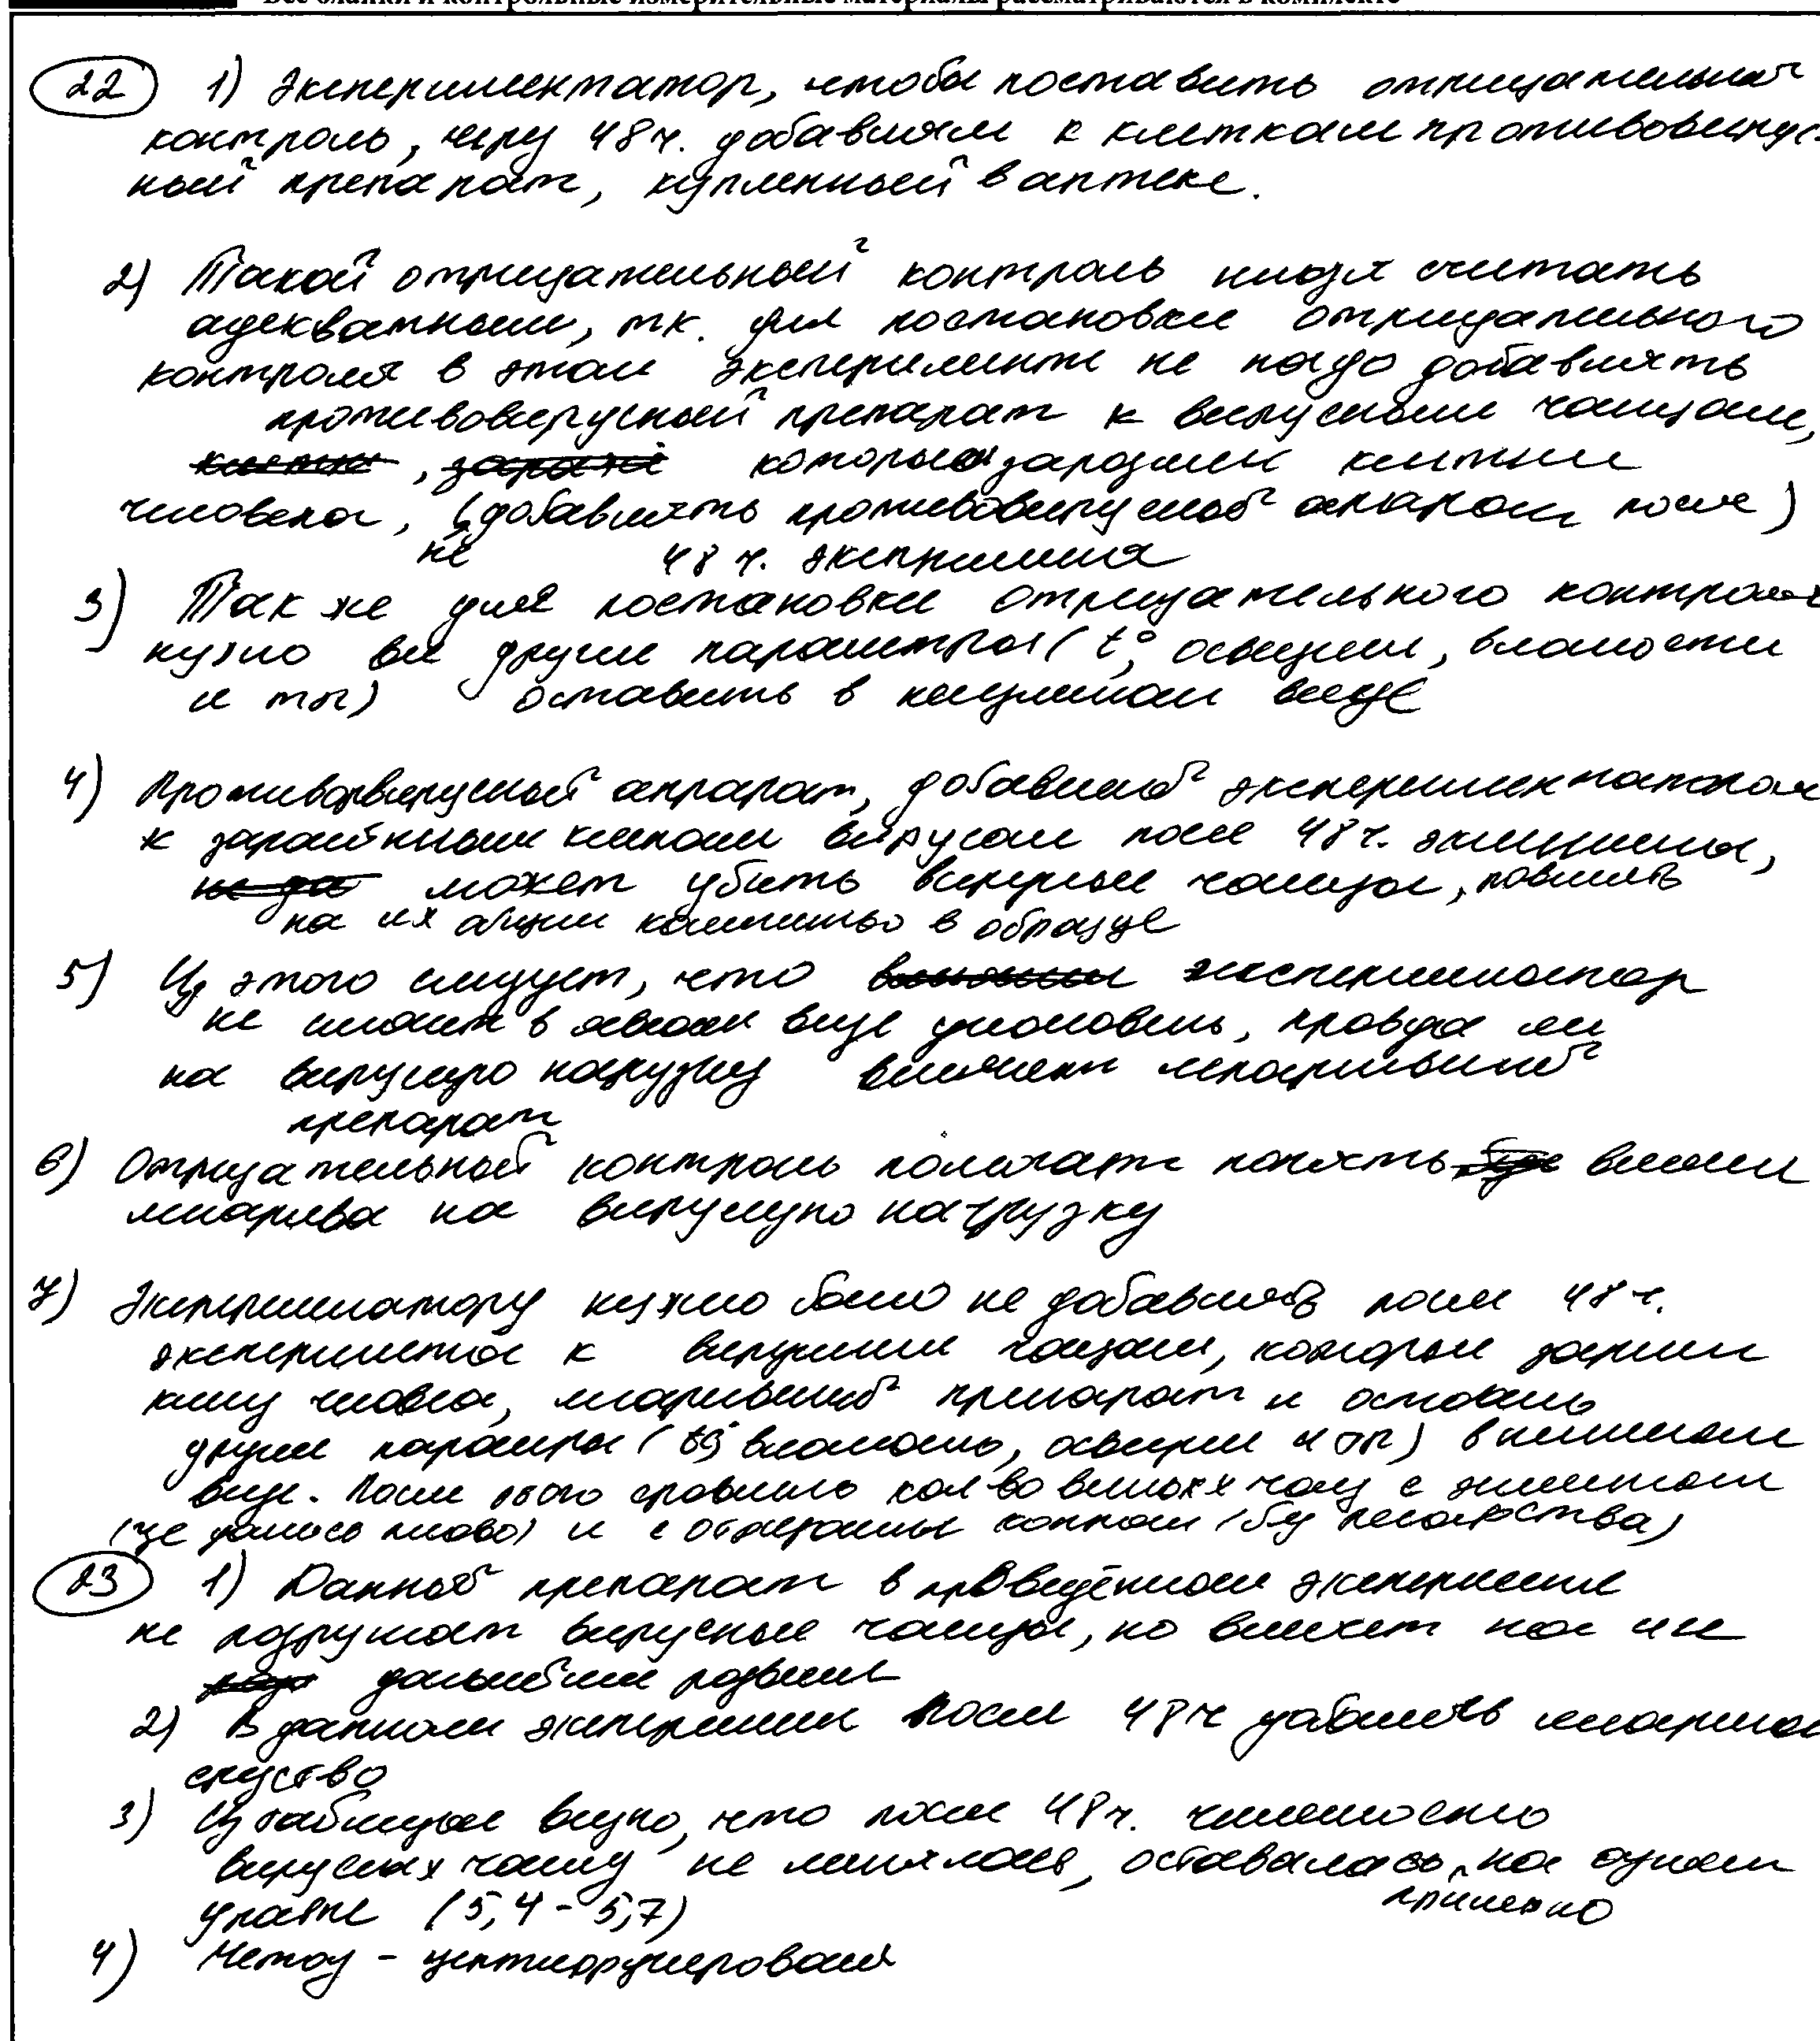 Все бланки и контрольные измерительные материалы рассматриваются в комплекте
22 1) Экспериментатор, чтобы поставить отрицательный
контроль, через 48 ч. добавлял к клеткам противовирус-
ный препарат, купленный в аптеке.
2) Такой отрицательный контроль нельзя считать
адекватным, т.к. для постановки отрицательного
контроля в этом эксперименте не надо добавлять
противовирусный препарат к вирусным частицам,
которые заразили клетки
человека, (не добавлять противовирусный апарат после)
48 ч. эксперимента
3) Так же для постановки отрицательного контроля
нужно все другие параметры (t°, освещение, влажности
и тп) оставить в неизменном виде
4) Противовирусный аппарат, добавленный экспериментатором
к заражённым клеткам вирусом после 48 ч. эксперимента,
может убить вирусные частицы, повлиять
на их общее количество в образце
5) Из этого следует, что экспериментатор
не сможет в явном виде установить, правда ли
на вирусную нагрузку влияет лекарственный
препарат
6) Отрицательный контроль помогает понять влияние
лекарства на вирусную нагрузку
7) Экспериментатору нужно было не добавлять после 48 ч.
эксперимента к вирусным частицам, которые заразили
клетку человека, лекарственный препарат и оставить
другие параметры (t°, влажность, освещение и тп) в неизменном
виде. После этого сравнить кол во вирусных частиц с экспериментом
(где давалось лекарство) и с отрицательным контролем (без лекарства)
23 1) Данный препарат в проведённом эксперименте
не разрушает вирусные частицы, но влияет на их
дальнейшее развитие
2) В данном эксперименте после 48 ч добавлять лекарственное
средство
3) Из таблицы видно, что после 48 ч. численность
вирусных частиц не менялась, оставалась на одном
примерно
уровне (5,4 - 5,7)
4) Метод - центрифугирования